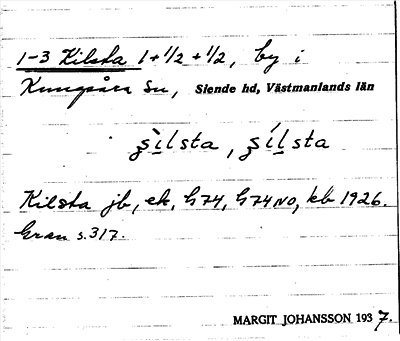 1-3 Kilsta 1+1/2+1/2, by i
Kungsåra Sn, Siende hd, Västmanlands län
ʂìlsta, ʂílsta
Kilsta jb, ek, G74, G74NO, kb 1926.
Gran s. 317.
MARGIT JOHANSSON 1937.